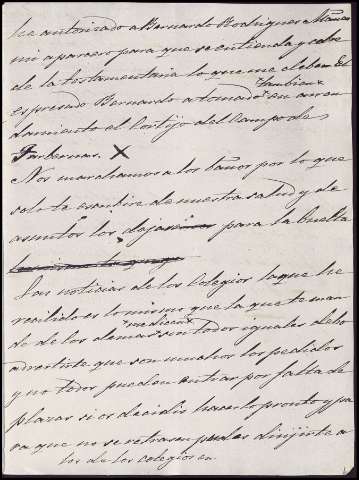 he autorizado a Bernardo Rodriguez Manias
mi aparsero para que se entienda y cobre
de la testamentaria lo que me deben El
tambien
espresado Bernardo a tomado en arren
damiento el Cortijo del Campo de
Tabernas. X
Nos marchamos a los baños por lo que
solo te escribire de nuestra salud y de
asuntos los dejas para la buelta
Las noticias de los Colegios la que he
recibido es lo mismo que la que te man
median
do de los demas son todos iguales debo
advertirte que son muchos los pedidos
y no todos pueden entrar por falta de
plazas si es decidís hacerlo pronto y pa
ra que no se retrasen puedes dirijirte a
los de los colegios en